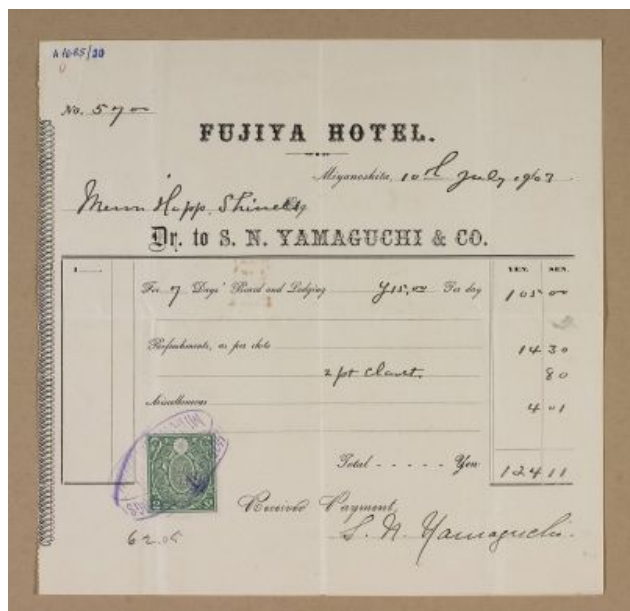 A 1685/30
No. 5700
FUJIYA HOTEL.
Miyanoshita, 10th July 1907
Hopp
Dr. to S. N. YAMAGUCHI & CO.
YEN. SEN.
For 7 Days' Board and Lodging Y15.00 Per day 105 00
Refreshments, as per chits 14 30
2 pt Claret. 80
Miscellaneous 4 01
Total - - - - - Yen 124 11
Received Payment,
S. N. Yamaguchi.
62.05